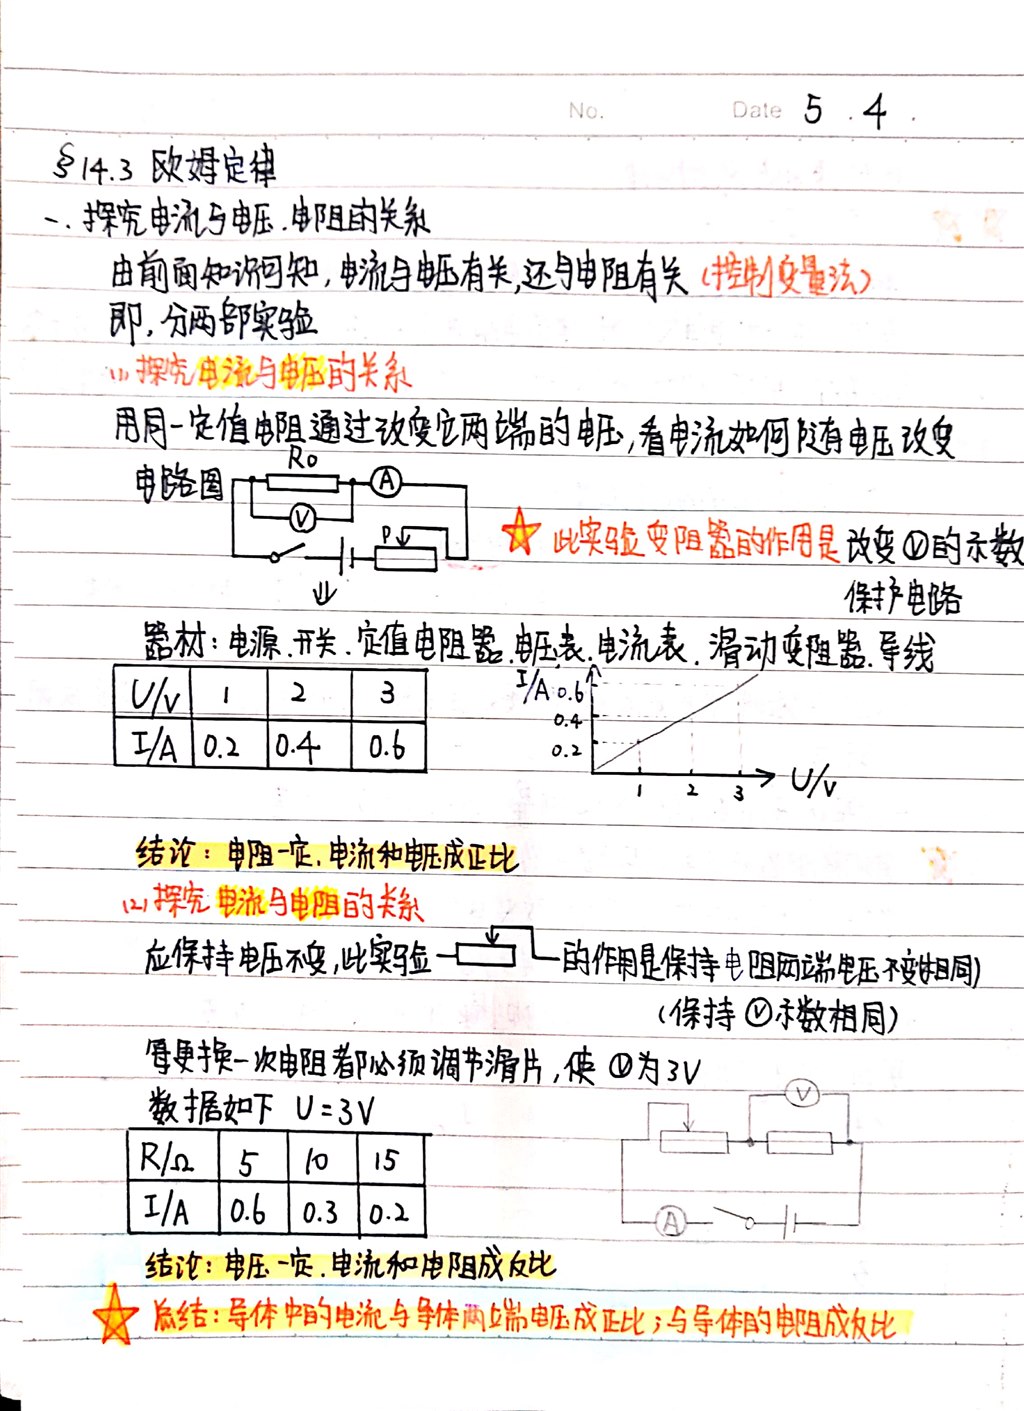 No.
Date 5.4.
§14.3 欧姆定律
一.探究电流与电压.电阻的关系
由前面知识可知,电流与电压有关,还与电阻有关(控制变量法)
即,分两部实验
(1)探究电流与电压的关系
用同一定值电阻通过改变它两端的电压,看电流如何随有电压改变
电路图
R0
A
V
P
此实验变阻器的作用是改变Ⓥ的示数
保护电路
器材:电源.开关.定值电阻器.电压表.电流表.滑动变阻器.导线
U/v 1 2 3
I/A 0.2 0.4 0.6
I/A 0.6
0.4
0.2
1 2 3 U/v
结论:电阻一定.电流和电压成正比
(2)探究电流与电阻的关系
应保持电压不变,此实验 的作用是保持电阻两端电压不变(相同)
(保持Ⓥ示数相同)
每更换一次电阻都必须调节滑片,使Ⓥ为3V
数据如下 U=3V
R/Ω 5 10 15
I/A 0.6 0.3 0.2
V
A
结论:电压一定.电流和电阻成反比
总结:导体中的电流与导体两端电压成正比;与导体的电阻成反比